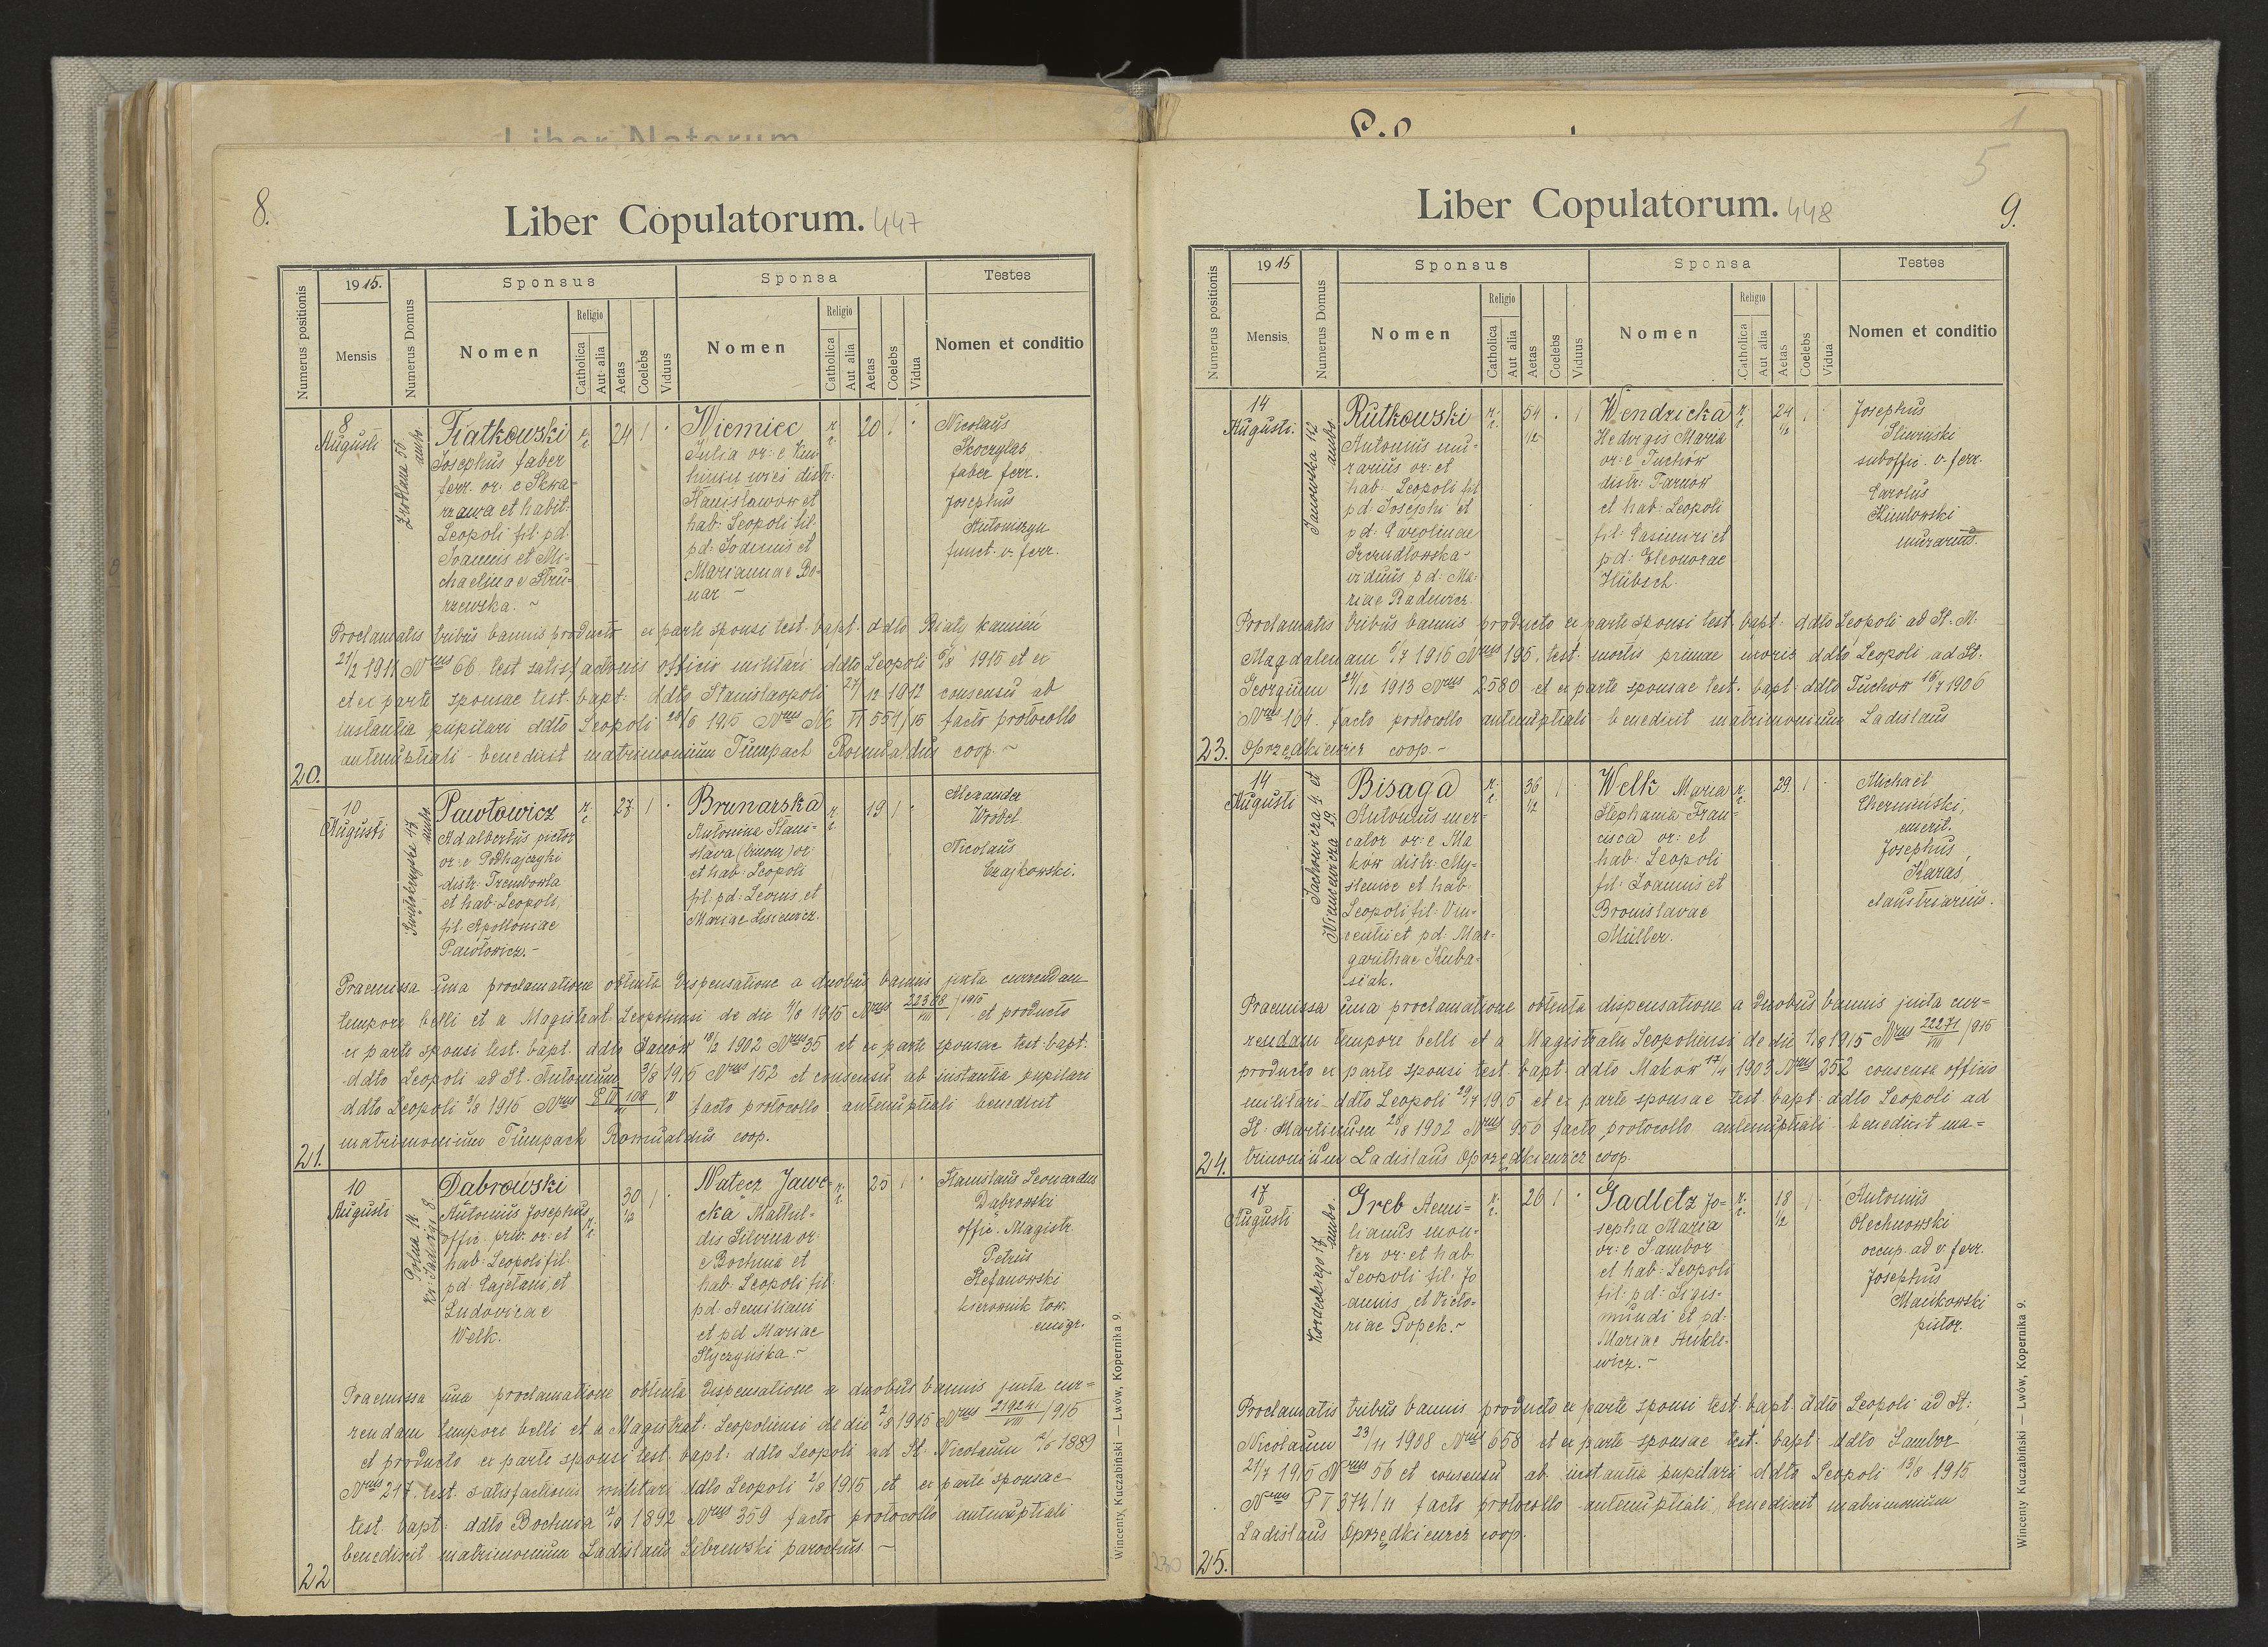 8.
Liber Copulatorum. 447
Numerus positionis
1915.
Mensis
Numerus Domus
Sponsus
Nomen
Religio
Catholica
Aut alia
Aetas
Coelebs
Viduus
Sponsa
Nomen
Religio
Catholica
Aut alia
Aetas
Coelebs
Vidua
Testes
Nomen et conditio
20.
8
Augusti
Źródlana 55
ambo
Piatkowski
Josephus faber
ferr. or. e Skwa-
rzawa et habit.
Leopoli fil. pd.
Joannis et Mi-
chaelinae Stru-
rzewska. ~
r. c.
24 |
Niemiec
Julia or: e
distr:
Stanisławów et
hab: Leopoli fil.
pd: et
Mariannae Bo-
nar ~
r. c.
20 |
Nicolaus
Skoczylas
faber ferr.
Josephus
Antoniszyn
funct. v. ferr.
Proclamatis tribus bannis producto ex parte sponsi test. bapt. ddto Biały kamień
21/2 1911 Nrus 66 test satisfactionis officio militari ddto Leopoli 6/8 1915 et ex
et ex parte sponsae test. bapt: ddto Stanislaopoli 27/12 1912 consensu ab
instantia pupilari ddto Leopoli 28/6 1915 Nrus Nc VI 551/15 facto protocollo
antenuptiali - benedixit matrimonium Tumpach Romualdus coop. ~
21.
10
Augusti
Świętokrzyska 47
ambo
Pawłowicz
Adalbertus pictor
or: e Podhajczyki
distr: Trembowla
et hab: Leopoli,
fil. Apolloniae
Pawłowicz. -
r. c.
27 |
Brunarska
Antonina Stani-
slava (binom) or:
et hab: Leopoli
fil: pd: Leonis, et
Mariae Lisiewicz.
r. c.
19 |
Alexander
Wróbel
Nicolaus
Czajkowski.
Praemissa una proclamatione obtenta dispensatione a duobus bannis juxta currendam
tempore belli et a Magistrat. Leopoliensi de die 4/8 1915 Nrus 22308/VIII /1915 et producto
ex parte sponsi test. bapt. ddto Janów 18/2 1902 Nrus 35 et ex parte sponsae test. bapt.
ddto Leopoli ad St. Antonium 3/8 1915 Nrus 152 et consensu ab instantia pupilari
ddto Leopoli 3/8 1915 Nrus facto protocollo antenuptiali benedixit
matrimonium Tumpach Romualdus coop.
22
10
Augusti
Polna 14.
Kr: Jadwigi 8.
Dąbrowski
Antonius Josephus
offic. priv. or: et
hab: Leopoli fil.
pd: Cajetani, et
Ludovicae
Welk.
r. c.
30 1/2 |
Natęcz Jawe-
cka Mathil-
dis Silvina or:
e Bochnia et
hab: Leopoli fil:
pd: Aemiliani
et pd Mariae
Styczyńska ~
r. c.
25 |
Stanislaus Leonardus
Dąbrowski
offic. Magistr.
Petrus
Stefanowski
kierownik tow.
emigr.
Praemissa una proclamatione obtenta dispensatione a duobus bannis juxta cur-
rendam tempore belli et a Magistrat: Leopoliensi de die 2/8 1915 Nrus 21924/VIII /915
et producto ex parte sponsi test. bapt: ddto Leopoli ad St. Nicolaum 2/5 1889
Nrus 217. test. satisfactionis militari ddto Leopoli 2/8 1915, et ex parte sponsae
test bapt: ddto Bochnia 1892 Nrus 359 facto protocollo antenuptiali
benedixit matrimonium Ladislaus Librewski parochus ~
Wincenty Kuczabiński — Lwów, Kopernika 9.
5
9.
Liber Copulatorum. 448
Numerus positionis
1915
Mensis
Numerus Domus
Sponsus
Nomen
Religio
Catholica
Aut alia
Aetas
Coelebs
Viduus
Sponsa
Nomen
Religio
Catholica
Aut alia
Aetas
Coelebs
Vidua
Testes
Nomen et conditio
23.
14
Augusti.
Janowska 112
ambo.
Rutkowski
Antonius mu-
rarius or: et
hab: Leopoli fil
pd Josephi et
pd: Carolinae
Szczudlowska -
viduus pd: Ma-
riae Radwicz.
r. c.
54 1/2 . |
Wendricka
Hedvigis Maria
or: e Tuchów
distr: Tarnow
et hab: Leopoli
fil: Casimiri et
pd: Eleonorae
Hübsch.
r. c.
24 1/2 |
Josephus
Śliwiński
suboffic. v. ferr.
Carolus
Kimlowski
murarius.
Proclamatis tribus bannis producto ex parte sponsi test bapt: ddto Leopoli ad St. M.
Magdalenam 6/7 1915 Nrus 195, test: mortis primae uxoris ddto Leopoli ad St.
Georgium 24/12 1913 Nrus 2580 et ex parte sponsae test. bapt: ddto Tuchow 16/7 1906
Nrus 164. facto protocollo antenuptiali - benedixit matrimonium Ladislaus
Oprzędkiewicz coop. -
24.
14
Augusti
Sachowicza 4. et
Niemcewicza 19.
Bisaga
Antonius mer-
cator or: e Ma
ków distr: My-
ślenice et hab.
Leopoli fil: Vin-
centii et pd: Mar-
garithae Kuba-
siak.
r. c.
36 1/2 |
Welk Maria
Stephania Fran-
cisca or: et
hab: Leopoli
fil: Joannis et
Bronislavae
Müller.
r. c.
29. |
Michael
Chermiński,
emerit.
Josephus
Karaś,
Praemissa una proclamatione obtenta dispensatione a duobus bannis juxta cur-
rendam tempore belli et a Magistratu Leopoliensi de die 1/8 1915 Nrus 22271/VIII /915
producto ex parte sponsi test. bapt. ddto Maków 17/4 1903 Nrus 252 consense officio
militari ddto Leopoli 29/7 1915 et ex parte sponsae test. bapt: ddto Leopoli ad
St: Martinum 26/8 1902 Nrus 950 facto protocollo antenuptiali benedixit ma-
trimonium Ladislaus Oprzędkiewicz coop.
25.
17
Augusti
Kordeckiego 17.
ambo.
Greb Aemi-
lianus mon-
ter or: et hab.
Leopoli fil. Jo
annis, et Victo-
riae Popek. ~
r. c.
26 |
Gadletz Jo-
sepha Maria
or: e Sambor
et hab: Leopoli
fil: pd: Sigis-
mundi et pd:
Mariae Hukle-
wicz. ~
r. c.
18 1/2 |
Antonius
Olechnowski
occup. ad v. ferr.
Josephus
Mańkowski
pistor.
Proclamatis tribus bannis producto ex parte sponsi test. bapt. ddto Leopoli ad St:
Nicolaum 23/11 1908 Nrus 658 et ex parte sponsae test. bapt. ddto Sambor
21/7 1915 Nrus 56 et consensu ab instantia pupilari ddto Leopoli 13/8 1915
Nrus P I 374/11 facto protocollo antenuptiali, benedixit matrimonium
Ladislaus Oprzędkiewicz coop.
230
Wincenty Kuczabiński — Lwów, Kopernika 9.